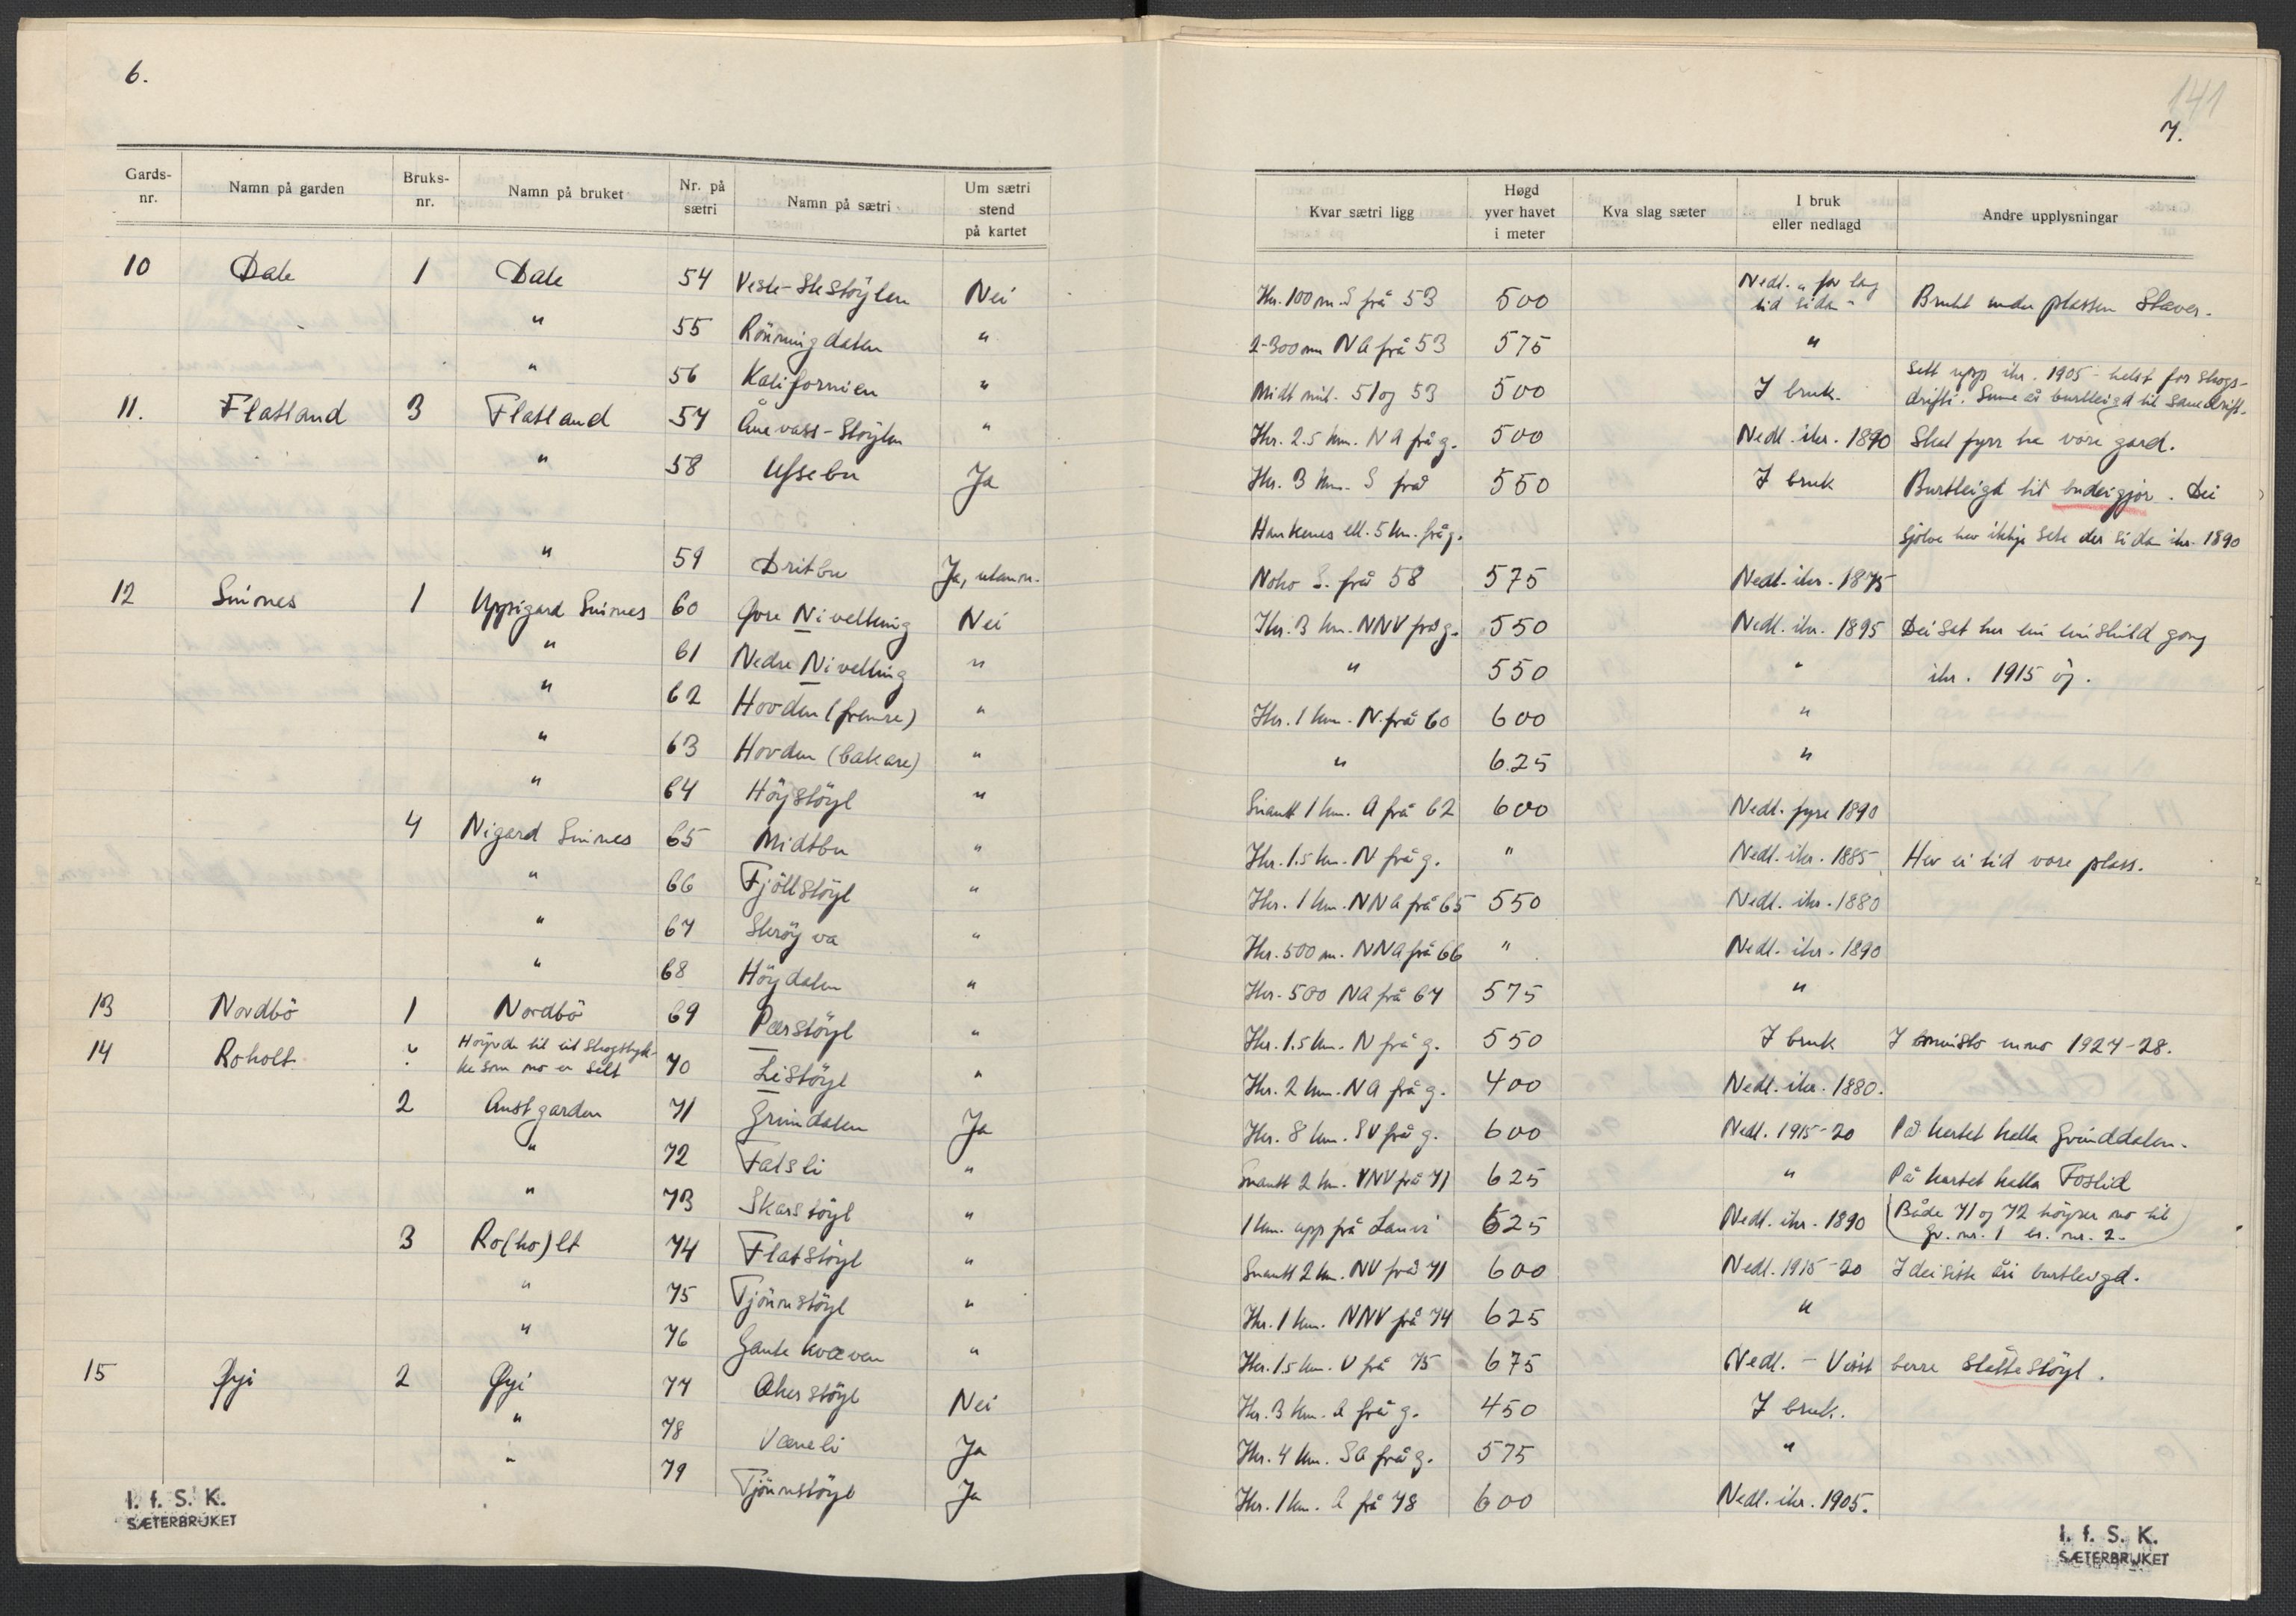 6.
Gards-nr. Namn på garden Bruks-nr. Namn på bruket Nr. på sætri Namn på sætri Um sætri stend på kartet
10 Dale 1 Dale 54 Vesle-Slestöylen Nei
" 55 Rönningdalen "
" 56 Kalifornien "
11. Flatland 3 Flatland 57 Ånevass-Stöylen "
" 58 Ufsebu Ja
" 59 Dritbu Ja, utan n.
12 Suines 1 Uppigard Suines 60 Øvre Nivelling Nei
" 61 Nedre Nivelling "
" 62 Hovden (fremre) "
" 63 Hovden (bakare) "
" 64 Höystöyl "
4 Nigard Suines 65 Midtbu "
" 66 Fjöllstöyl "
" 67 Skröyva "
" 68 Höydalen "
13 Nordbö 1 Nordbö 69 Perstöyl "
14 Roholt ? Höyrde til eit skogstyk-
ke som no er selt 70 Listöyl "
2 Austgarden 71 Grimdalen Ja
" 72 Fatsli "
" 73 Skarstöyl "
3 Ro(ho)lt 74 Flatstöyl "
" 75 Tjönnstöyl "
" 76 Gautekvæven "
15 Øyi 2 Øyi 77 Åkerstöyl Nei
" 78 Væneli Ja
" 79 Tjönnstöyl Ja
I. f. S. K.
SÆTERBRUKET
141
7.
Kvar sætri ligg Høgd yver havet i meter Kva slag sæter I bruk eller nedlagd Andre upplysningar
Ikr. 100 m. S frå 53 500 Nedl. "for lag
tid sidan" Brukt under plassen Staver.
2-300 m NA frå 53 575 "
Midt mil. 51 og 53 500 I bruk. Sett upp ikr. 1905 - helst for skogs-
drifti. Sume år burtleigd til sauedrift.
Ikr. 2.5 km. NA frå g. 500 Nedl. ikr. 1890 Skal fyrr ha vore gard.
Ikr. 3 km. S frå 550 I bruk Burtleigd til budeigjor. Dei
Haukenes ell. 5 km. frå g. sjölve hev ikkje sete der sidan ikr. 1890
Noko S. frå 58 575 Nedl. ikr. 1875
Ikr. 3 km. NNV frå g. 550 Nedl. ikr. 1895 Dei sat her ein einskild gong
" 550 " ikr. 1915 óg.
Ikr. 1 km. N. frå 60 600 "
" 625 "
Snautt 1 km. A frå 62 600 Nedl. fyre 1890
Ikr. 1.5 km. N frå g. " Nedl. ikr. 1885 Hev ei tid vore plass.
Ikr. 1 km. NNA frå 65 550 Nedl. ikr. 1880
Ikr. 500 m. NNA frå 66 " Nedl. ikr. 1890
Ikr. 500 NA frå 67 575 "
Ikr. 1.5 km. N frå g. 550 I bruk I minsto enno 1927-28.
Ikr. 2 km. NA frå g. 400 Nedl. ikr. 1880.
Ikr. 8 km. SV frå g. 600 Nedl. 1915-20 På kartet kalla Grinddalen.
Snautt 2 km. VNV frå 71 625 " På kartet kalla Foslid
1 km. upp frå Lauvi 625 Nedl. ikr. 1890 (Både 71 og 72 höyrer no til
Gr. nr. 1 br. nr. 2.)
Snautt 2 km. NV frå 71 600 Nedl. 1915-20 I dei siste åri burtleigd.
Ikr. 1 km. NNV frå 74 625 "
Ikr. 1.5 km. V frå 75 675 Nedl. - Visst berre slåttestöyl.
Ikr. 3 km. A frå g. 450 I bruk.
Ikr. 4 km. SA frå g. 575 "
Ikr. 1 km. A frå 78 600 Nedl. ikr. 1905.
I. f. S. K.
SÆTERBRUKET